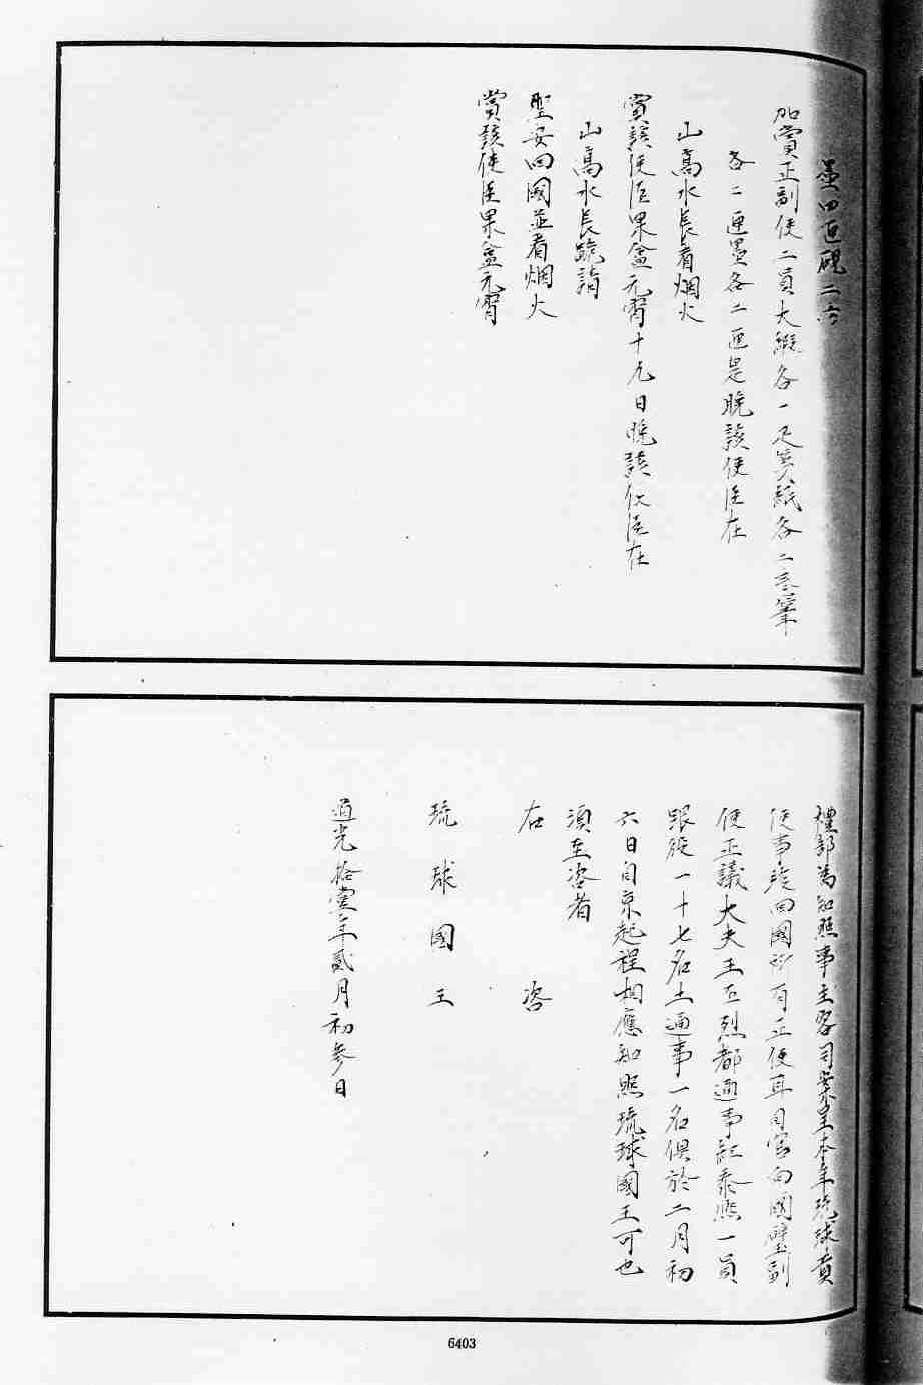 壺四匣硯二方
加賞正副使二員大緞各一疋箋紙各二卷筆
各二匣墨各二匣是晚該使臣在
山高水長看烟火
賞該使臣果盒元宵十九日晚該使臣在
山高水長跪請
聖安回國並看烟火
賞該使臣果盒元宵
禮部為知照事主客司案呈本年琉球貢
使事竣回國所有正使耳目官向國璧副
使正議大夫王丕烈都通事紅泰熙一員
跟役一十七名土通事一名俱於二月初
六日自京起程相應知照琉球國王可也
須至咨者
右咨
琉球國王
道光拾壹年貳月初參日
6403